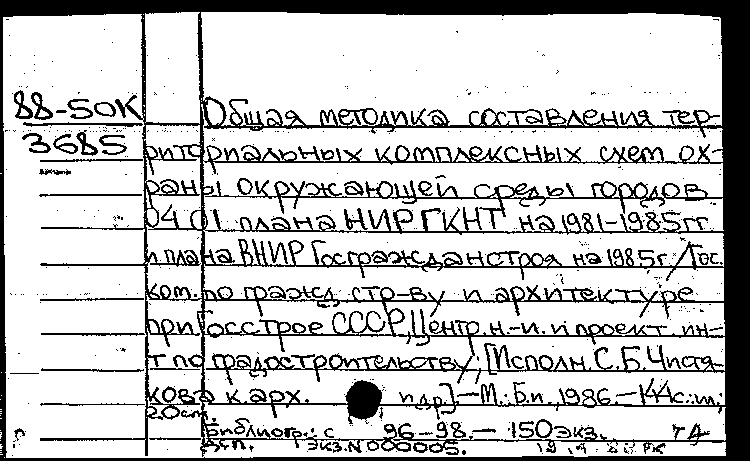 88-50К
3685
Общая методика составления тер-
риториальных комплексных схем ох-
раны окружающей среды городов
04 01 плана НИР ГКНТ на 1981-1985 гг
и плана ВНИР Госгражданстроя на 1985 г. / Гос.
ком. по гражд. стр-ву и архитектуре
при Госстрое СССР, Центр. н.-и. и проект. ин-
т по градостроительству; [Исполн. С. Б. Чистя-
кова к. арх. и др.]. — М.: Б.и., 1986. — 144 с.: ил.;
20 см.
Библиогр.: с 96-98. — 150 экз.
ЭКЗ.N 000005.